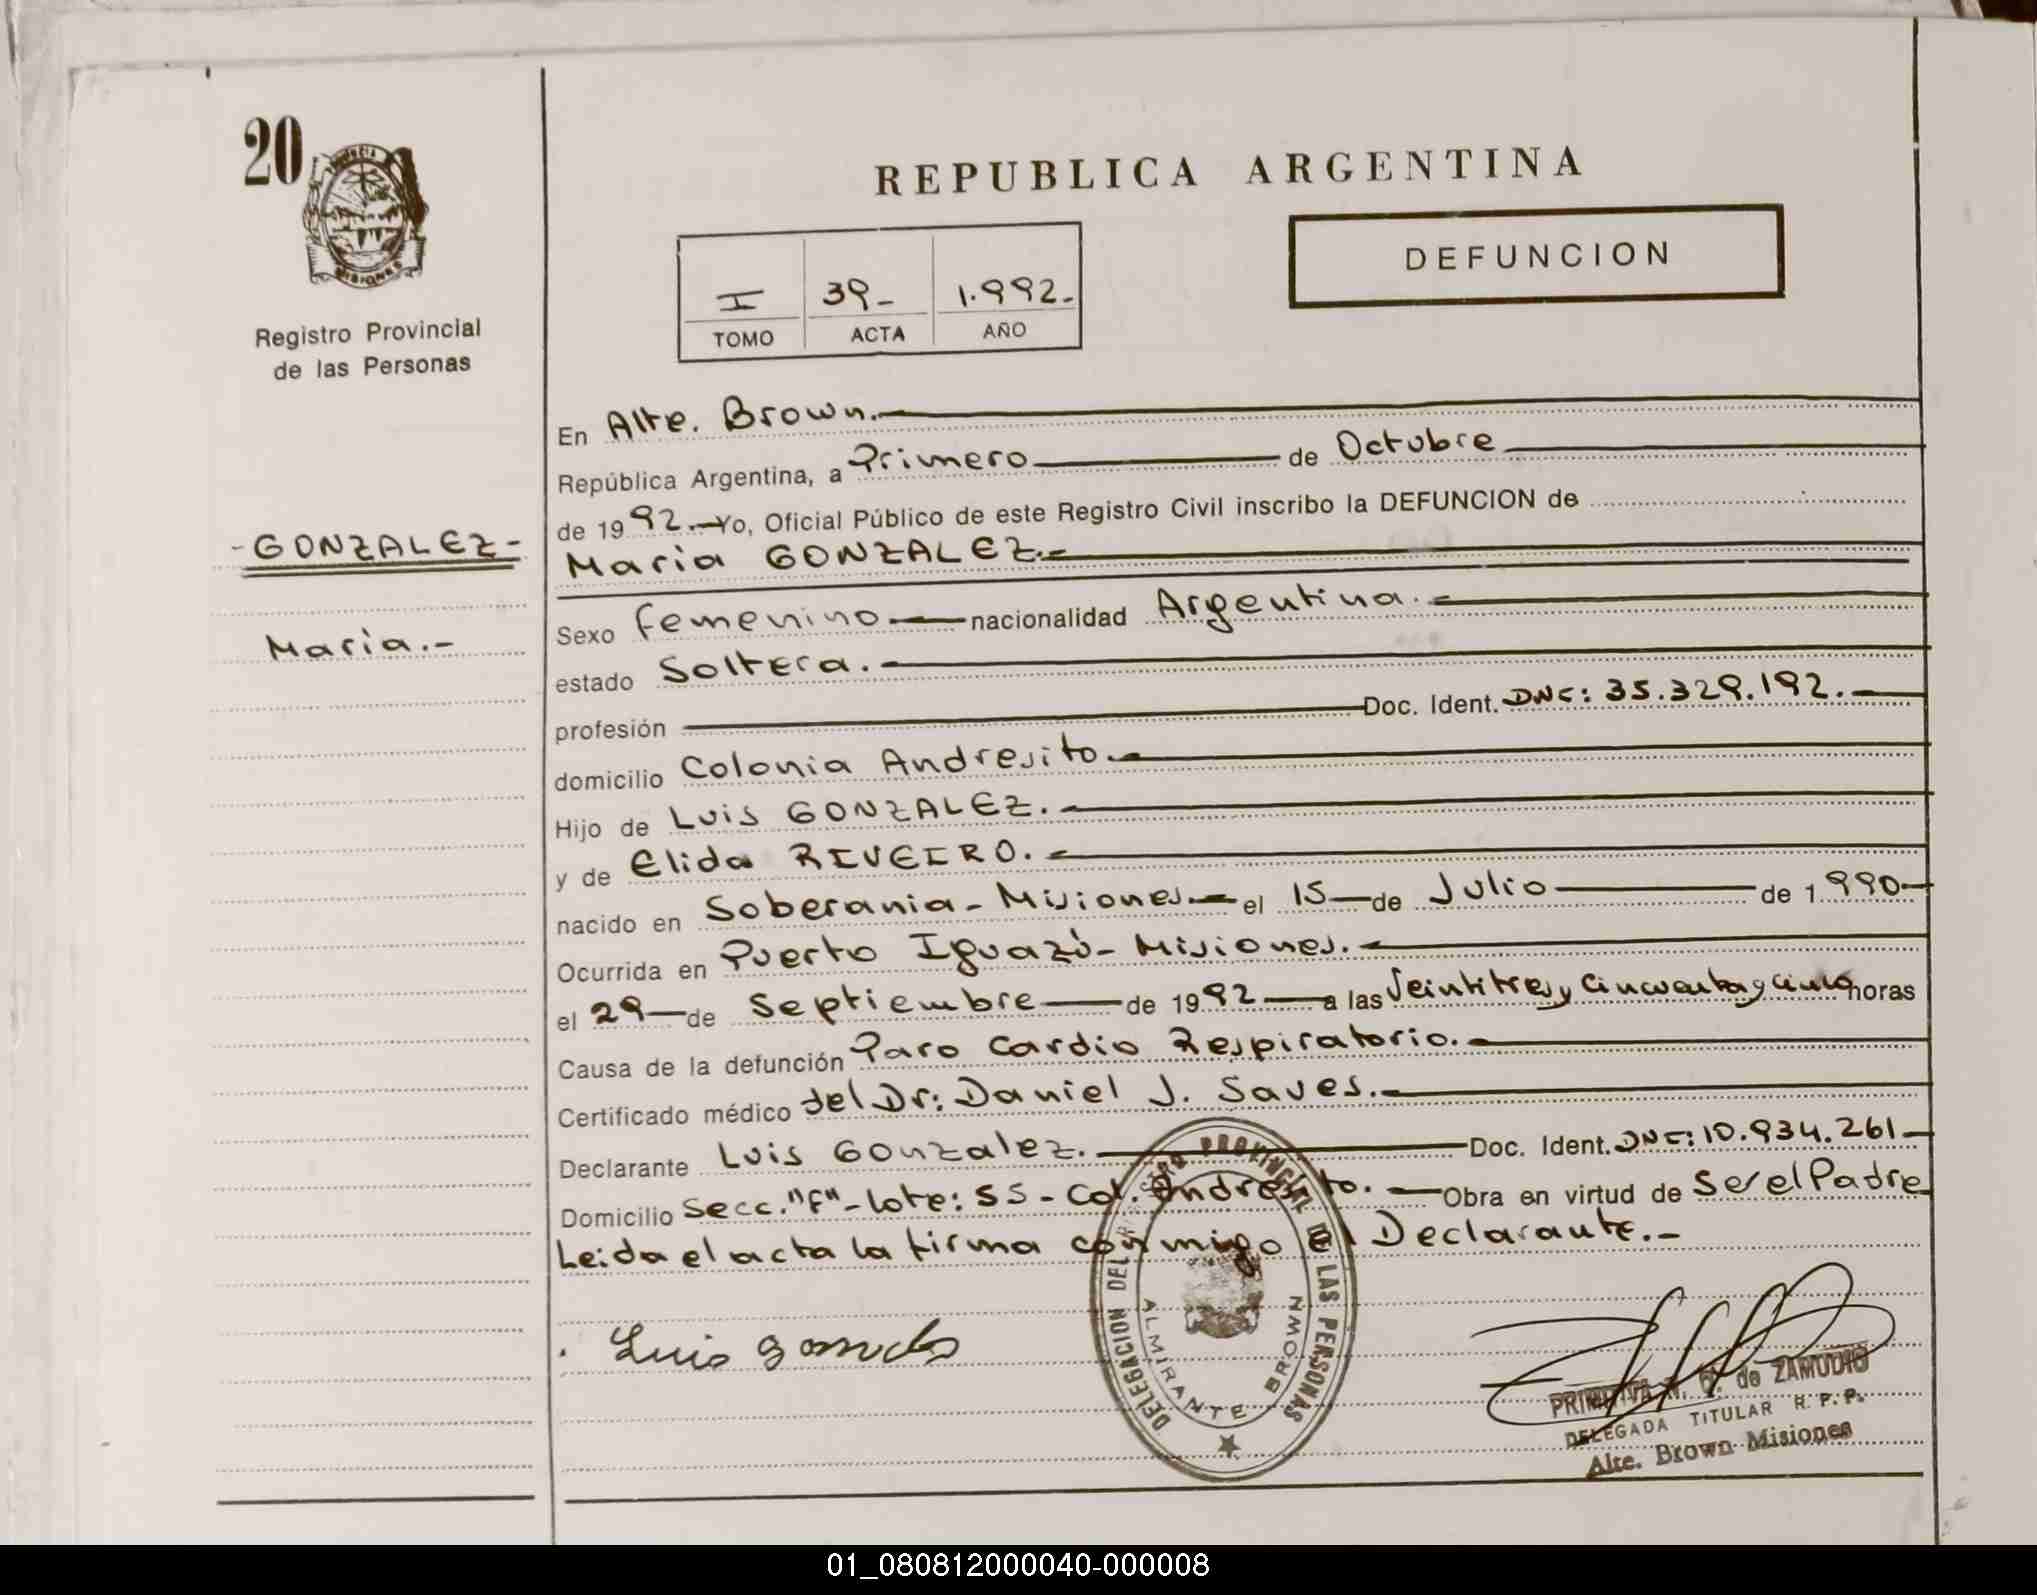 20
PROVINCIA
MISIONES
Registro Provincial
de las Personas
-GONZALEZ-
Maria.-
REPUBLICA ARGENTINA
DEFUNCION
I 39- 1.992.-
TOMO ACTA AÑO
En Alte. Brown.
República Argentina, a Primero de Octubre
de 1992.- Yo, Oficial Público de este Registro Civil inscribo la DEFUNCION de
Maria GONZALEZ.-
Sexo femenino nacionalidad Argentina.-
estado Soltera.-
profesión Doc. Ident. DNI: 35.329.192.-
domicilio Colonia Andresito.-
Hijo de Luis GONZALEZ.-
y de Elida RIVEIRO.-
nacido en Soberania - Misiones.- el 15 de Julio de 1990-
Ocurrida en Puerto Iguazú - Misiones.-
el 29 de Septiembre de 1992 a las Veintitres y Cincuenta y cinco horas
Causa de la defunción Paro Cardio Respiratorio.-
Certificado médico del Dr: Daniel J. Saves.-
Declarante Luis Gonzalez.- Doc. Ident. DNI: 10.934.261-
Domicilio Secc. "F" - lote: 55 - Col. Andresito.- Obra en virtud de Ser el Padre
Leida el acta la firma conmigo el Declarante.-
DELEGACION DEL REGISTRO PROVINCIAL DE LAS PERSONAS
ALMIRANTE BROWN
Luis Gonzalez
PRIMITIVA N. G. de ZAMUDIO
DELEGADA TITULAR R. P. P.
Alte. Brown Misiones
01_080812000040-000008